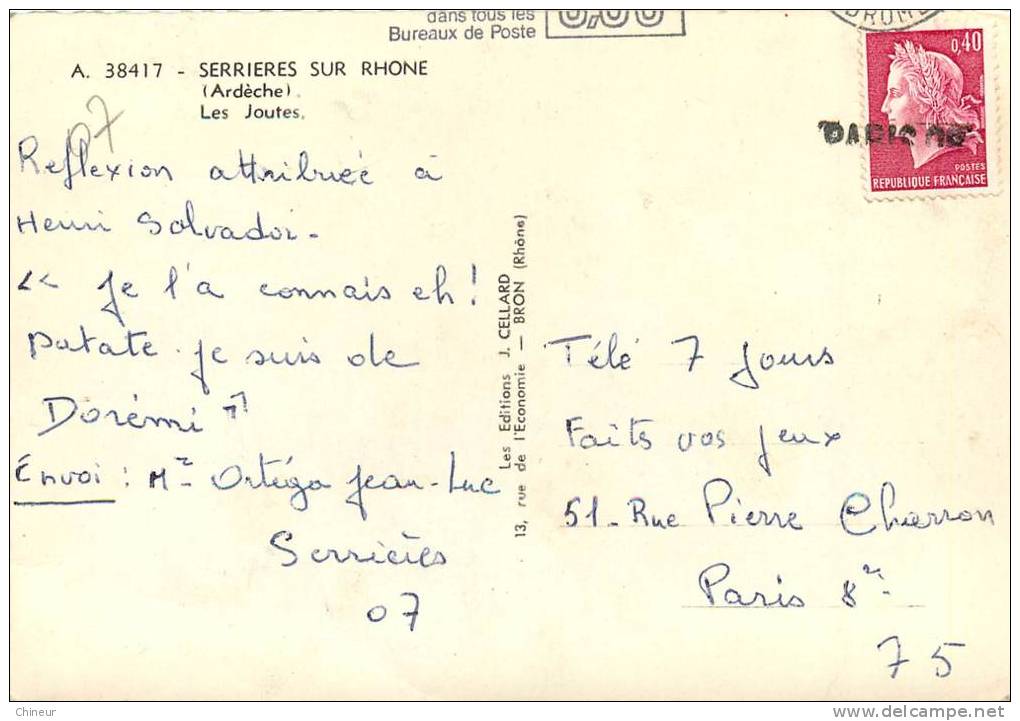 dans tous les
Bureaux de Poste
A. 38417 - SERRIERES SUR RHONE
(Ardèche)
Les Joutes.
07
Reflexion attribuée à
Henri Salvador -
<< Je l'a connais eh!
patate je suis de
Dorémi >>
Envoi : Mr Ortéga Jean-Luc
Serrières
07
Les Editions J. CELLARD
13, rue de l'Economie — BRON (Rhône)
0,40
POSTES
REPUBLIQUE FRANÇAISE
Télé 7 Jours
Faits vos jeux
51 - Rue Pierre Charron
Paris 8e
75
Chineur
www.delcampe.net